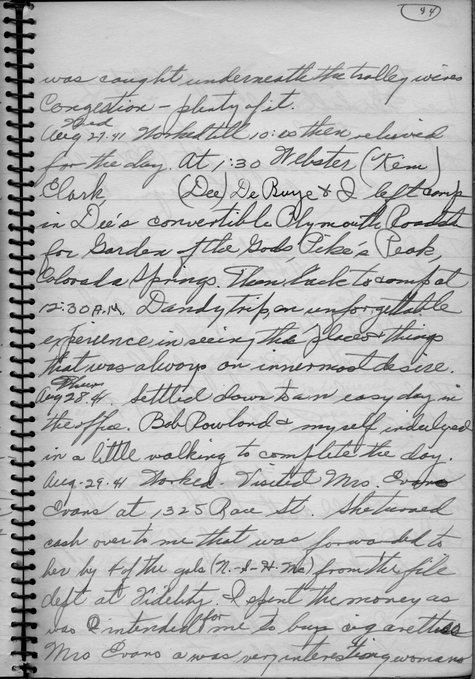 94
was caught underneath the trolley wires
Congestion - plenty of it.
Wed
Aug 27.41 Worked till 10:00 then relieved
for the day. At 1:30 Webster (Kem)
Clark, (Dee) De Ruye & I left camp
in Dee's convertible Plymouth Roadster
for Garden of the Gods, Pike's Peak,
Colorado Springs. Then back to camp at
12:30 A.M. Dandy trip an unforgettable
experience in seeing the places & things
that was always on innermost desire.
Thur
Aug 28.41. Settled down to an easy day in
the office. Bob Rowland & myself indulged
in a little walking to complete the day.
Aug. 29.41 Worked. Visited Mrs. Evans
Evans at 1325 Race St. She turned
cash over to me that was forwarded to
her by 4 of the gals (N.-S-H-Mc) from the file
dept at Fidelity. I spent the money as
was intended for me to buy cigarettes
Mrs Evans a was very interesting woman